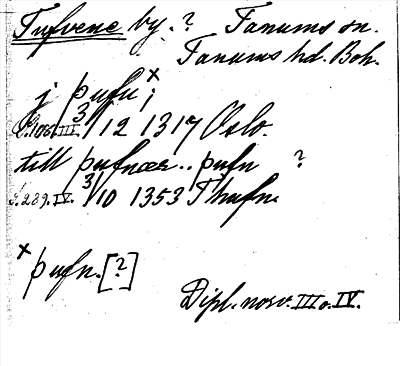 Tufvene by. ? Tanums sn.
Tanums hd. Boh.
j þufu x;
S. 108. III. 3/12 1317 Oslo.
till þufnær.. þufn ?
S. 289. IV. 3/10 1353 Thufn.
x þufn. [?]
Dipl. norv. III o. IV.